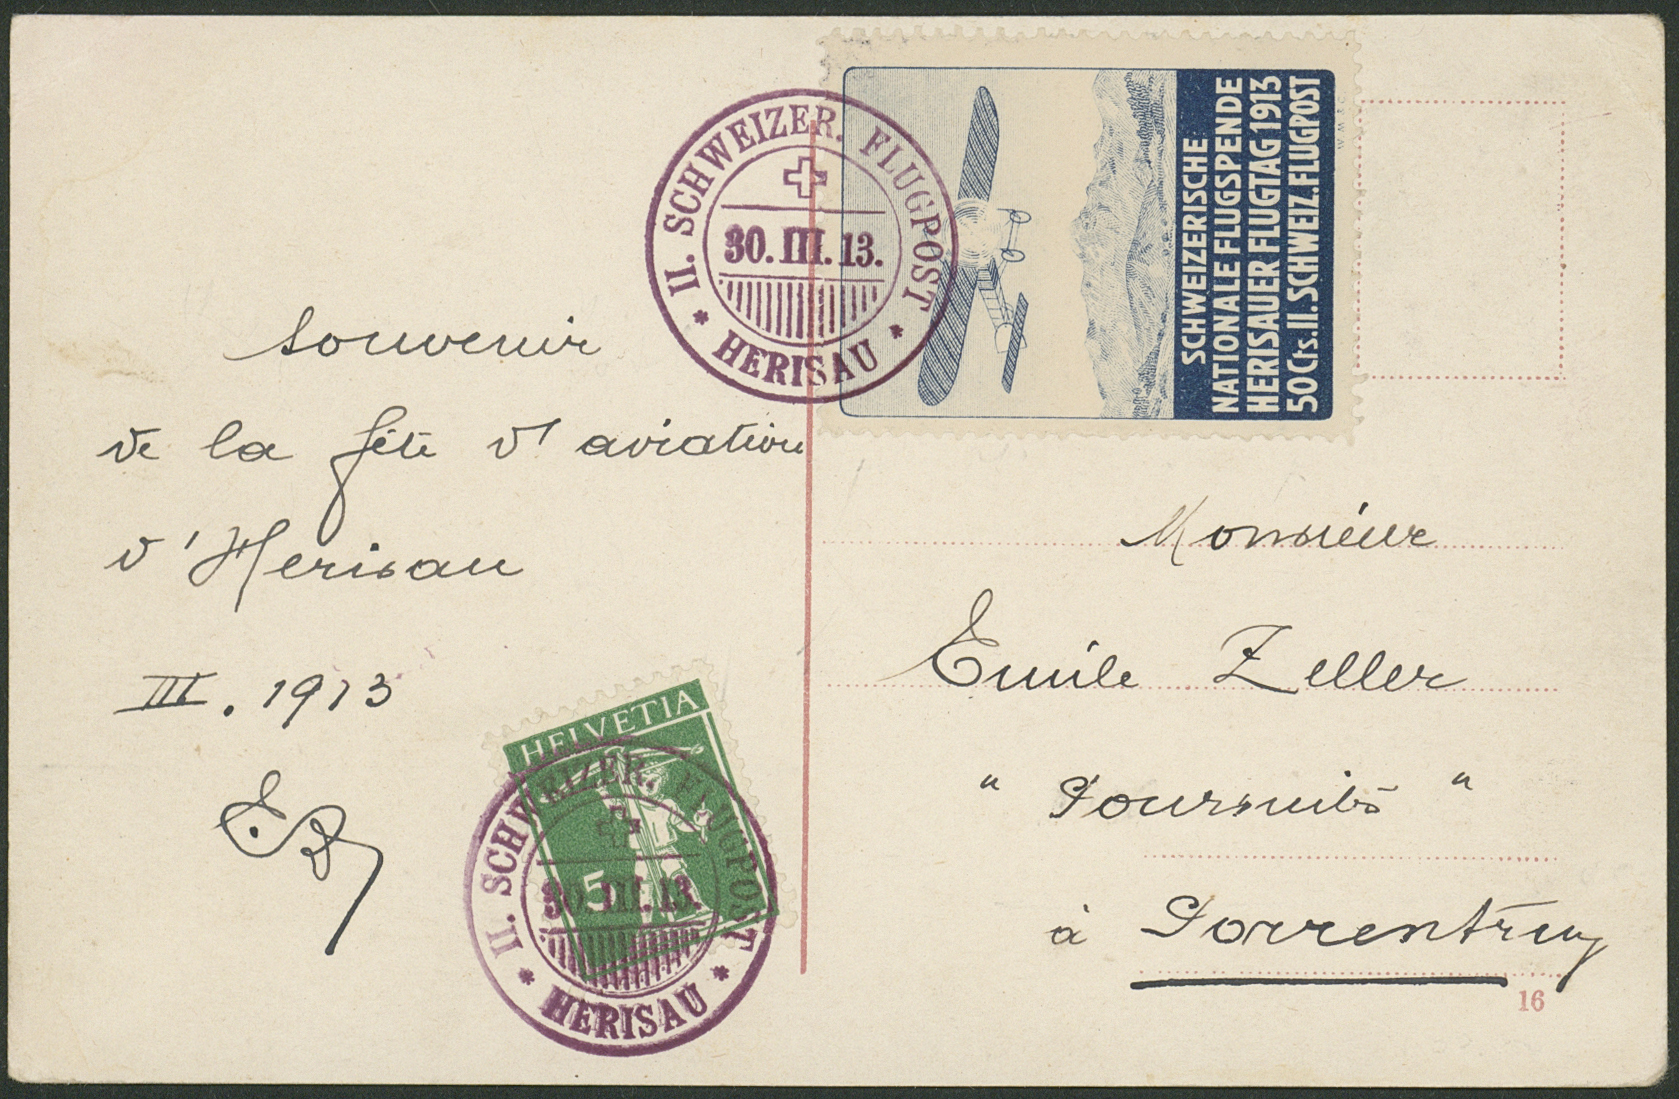 II. SCHWEIZER. FLUGPOST
30.III.13.
* HERISAU *
SCHWEIZERISCHE
NATIONALE FLUGSPENDE
HERISAUER FLUGTAG 1913
50 Cts. II. SCHWEIZ. FLUGPOST
souvenir
de la fête d'aviation
d'Herisau
III. 1913
HELVETIA
5
II. SCHWEIZER. FLUGPOST
30.III.13.
* HERISAU *
Monsieur
Emile Zeller
à Porrentruy
16